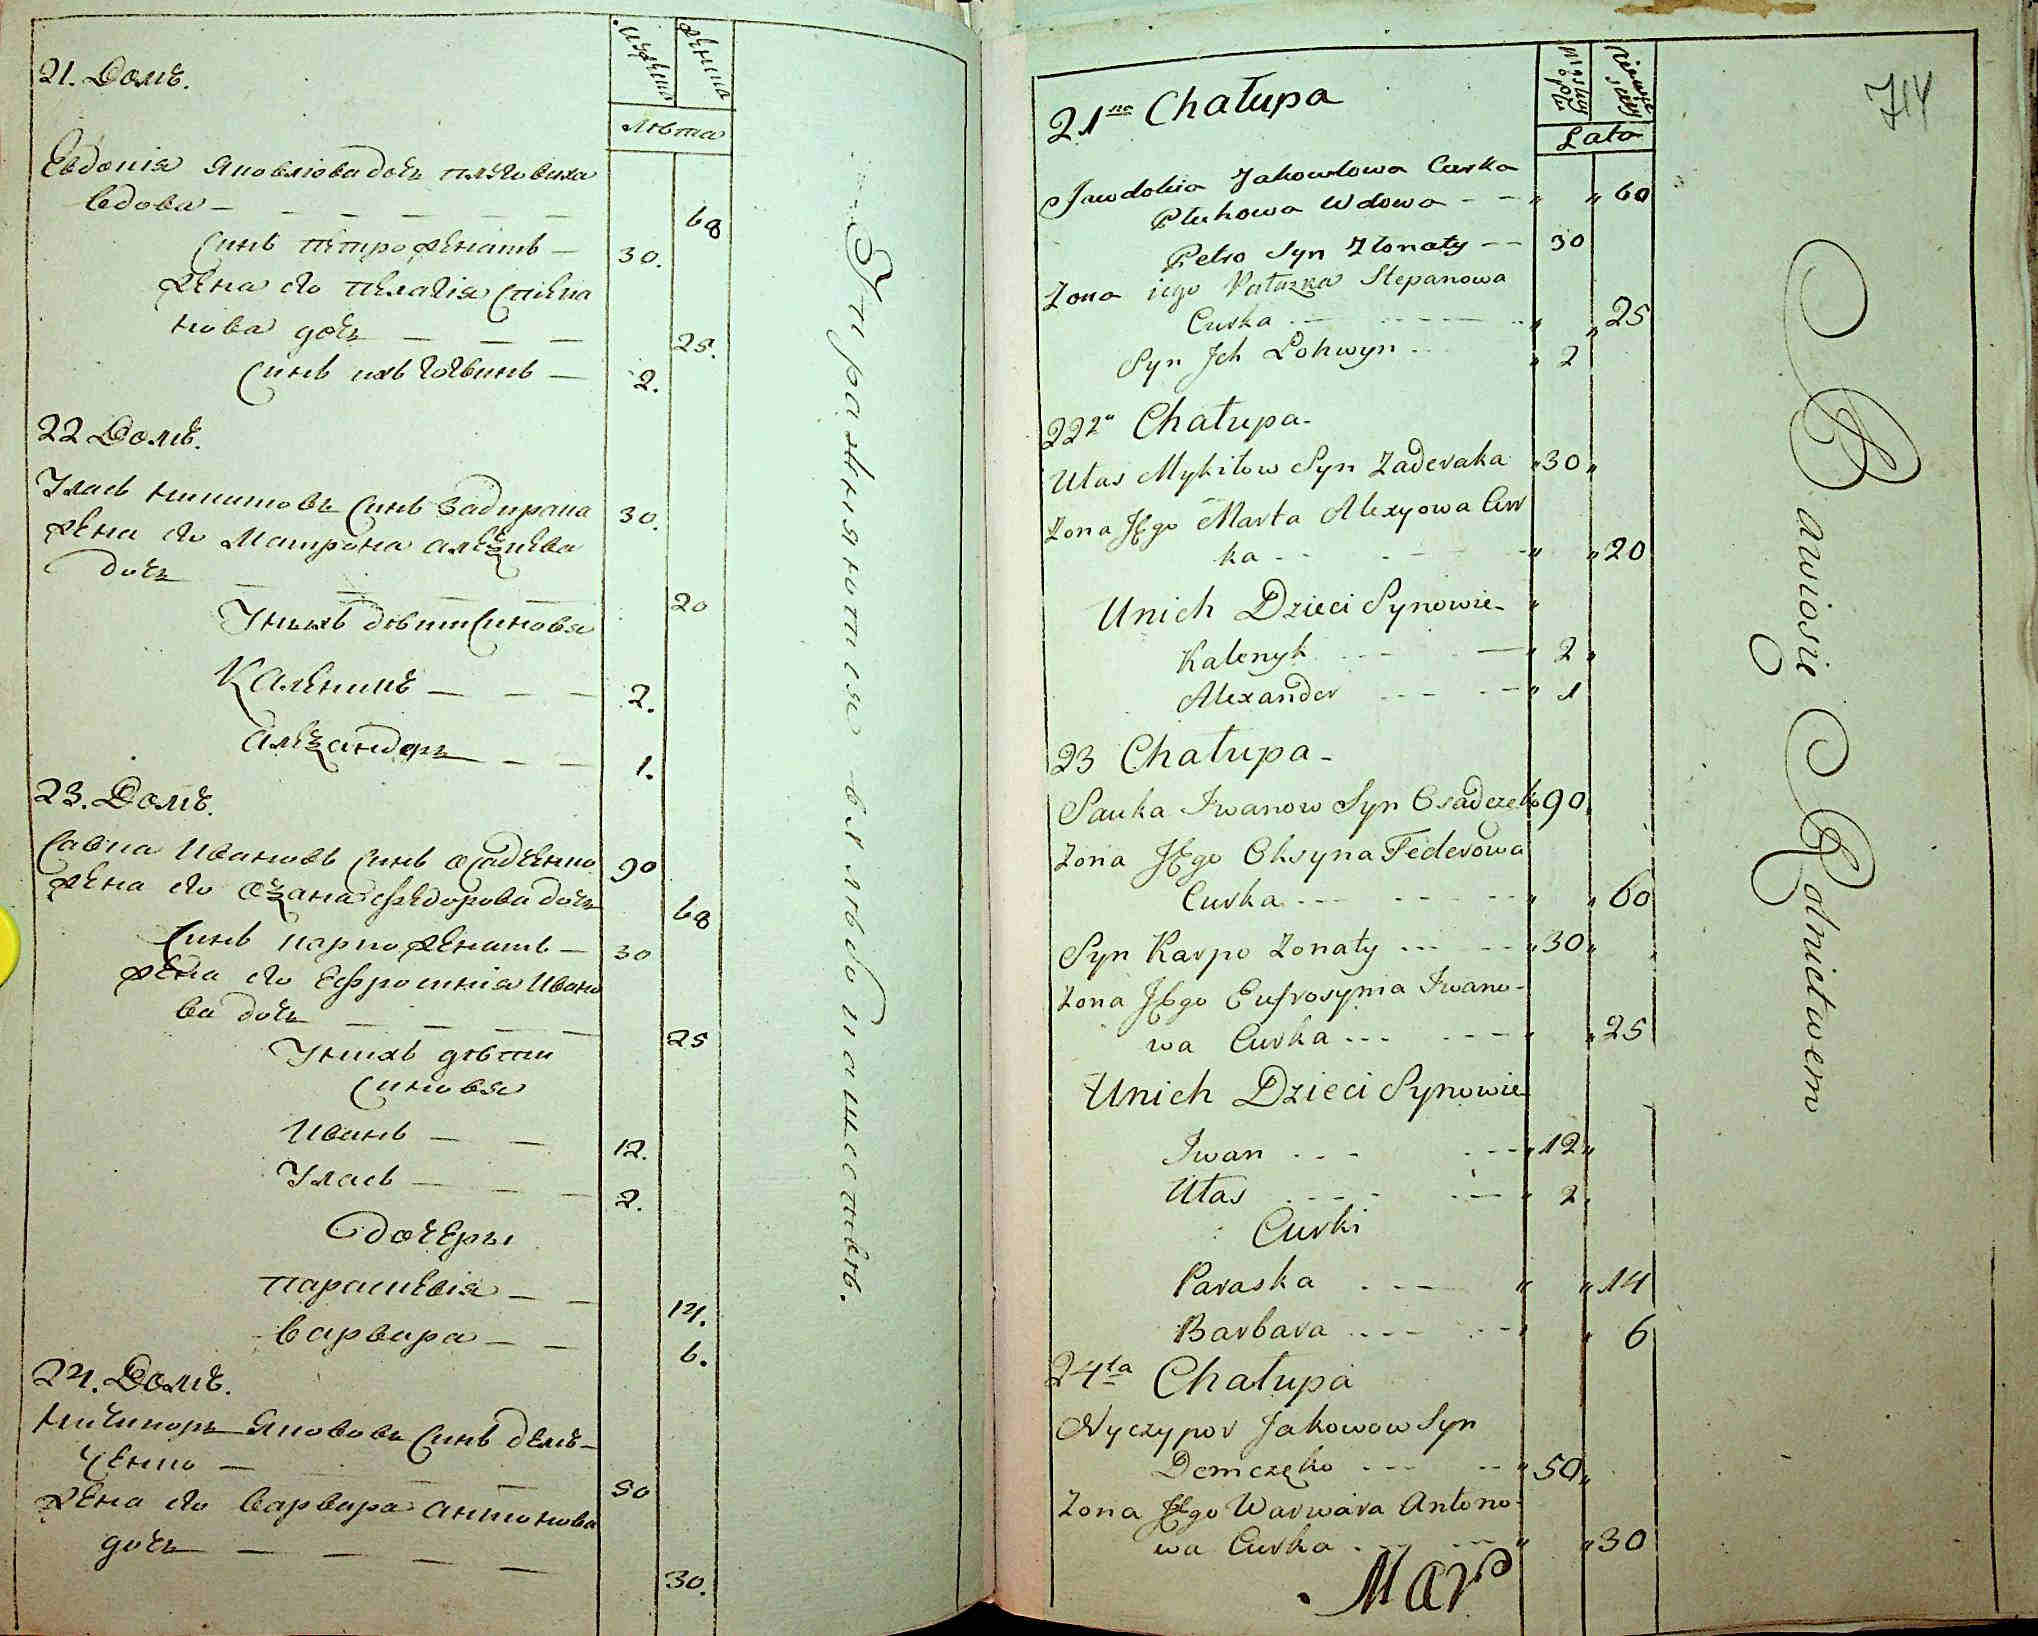 21. Домъ.
мужеска
женска
Лѣта
Евдокія Яковлюва дочь плуговика
вдова — 60
Синъ петро женатъ — 30.
жена его пелагія степа
нова дочь — 25.
Синъ ихъ логвинъ — 2.
22 Домъ.
Уласъ никитовъ синъ задирака 30.
жена его Матрона алеѯиева
дочь — 20
У нихъ дѣти синовя
Каленикъ — 2.
Алеѯандоръ — 1.
23. Домъ.
Савка Ивановъ синъ осадченко 90
жена его Оѯана федорова дочь 60
Синъ карпо женатъ — 30
жена его Ефросинія Ивано
ва дочь — 25
У нихъ дѣти
синовя
Иванъ — 12.
Уласъ — 2.
дочеры
параскевія — 14.
варвара — 6.
24. Домъ.
Ничипоръ Якововъ синъ демъ-
ченко — 50
жена его варвара антонова
дочь — 30.
Упражняются въ хлѣбопашествѣ.
714
21na Chałupa
Męskiey płci
Niewieściey
Lata
Jawdokia Jakowlowa Curka
Płuhowa Wdowa - - " " 60
Petro Syn Żonaty - - 30
Żona iego Pałazka Stepanowa
Curka - - " " 25
Syn Jch Lohwyn . . " 2
222a Chałupa.
Ułas Mykitow Syn Zaderaka " 30 "
Żona Jego Marta Alexyowa Cur
ka - - " " 20
Unich Dzieci Synowie - "
Kalenyk - - " 2 "
Alexander - - " 1
23 Chałupa -
Sauka Iwanow Syn Osadczęko 90 "
Żona Jego Oksyna Federowa
Curka - - " " 60
Syn Karpo Żonaty - - " 30 "
Żona Jego Eufrosynia Iwano-
wa Curka - - " " 25
Unich Dzieci Synowie
Iwan - - " 12 "
Ułas - - " 2 "
Curki
Paraska - - " " 14
Barbara - - " " 6
24ta Chałupa
Nyczypor Jakowow Syn
Demczęko - - " 50 "
Żona Jego Warwara Antono-
wa Curka - - " " 30
Mar
Bawiosie Rolnictwem